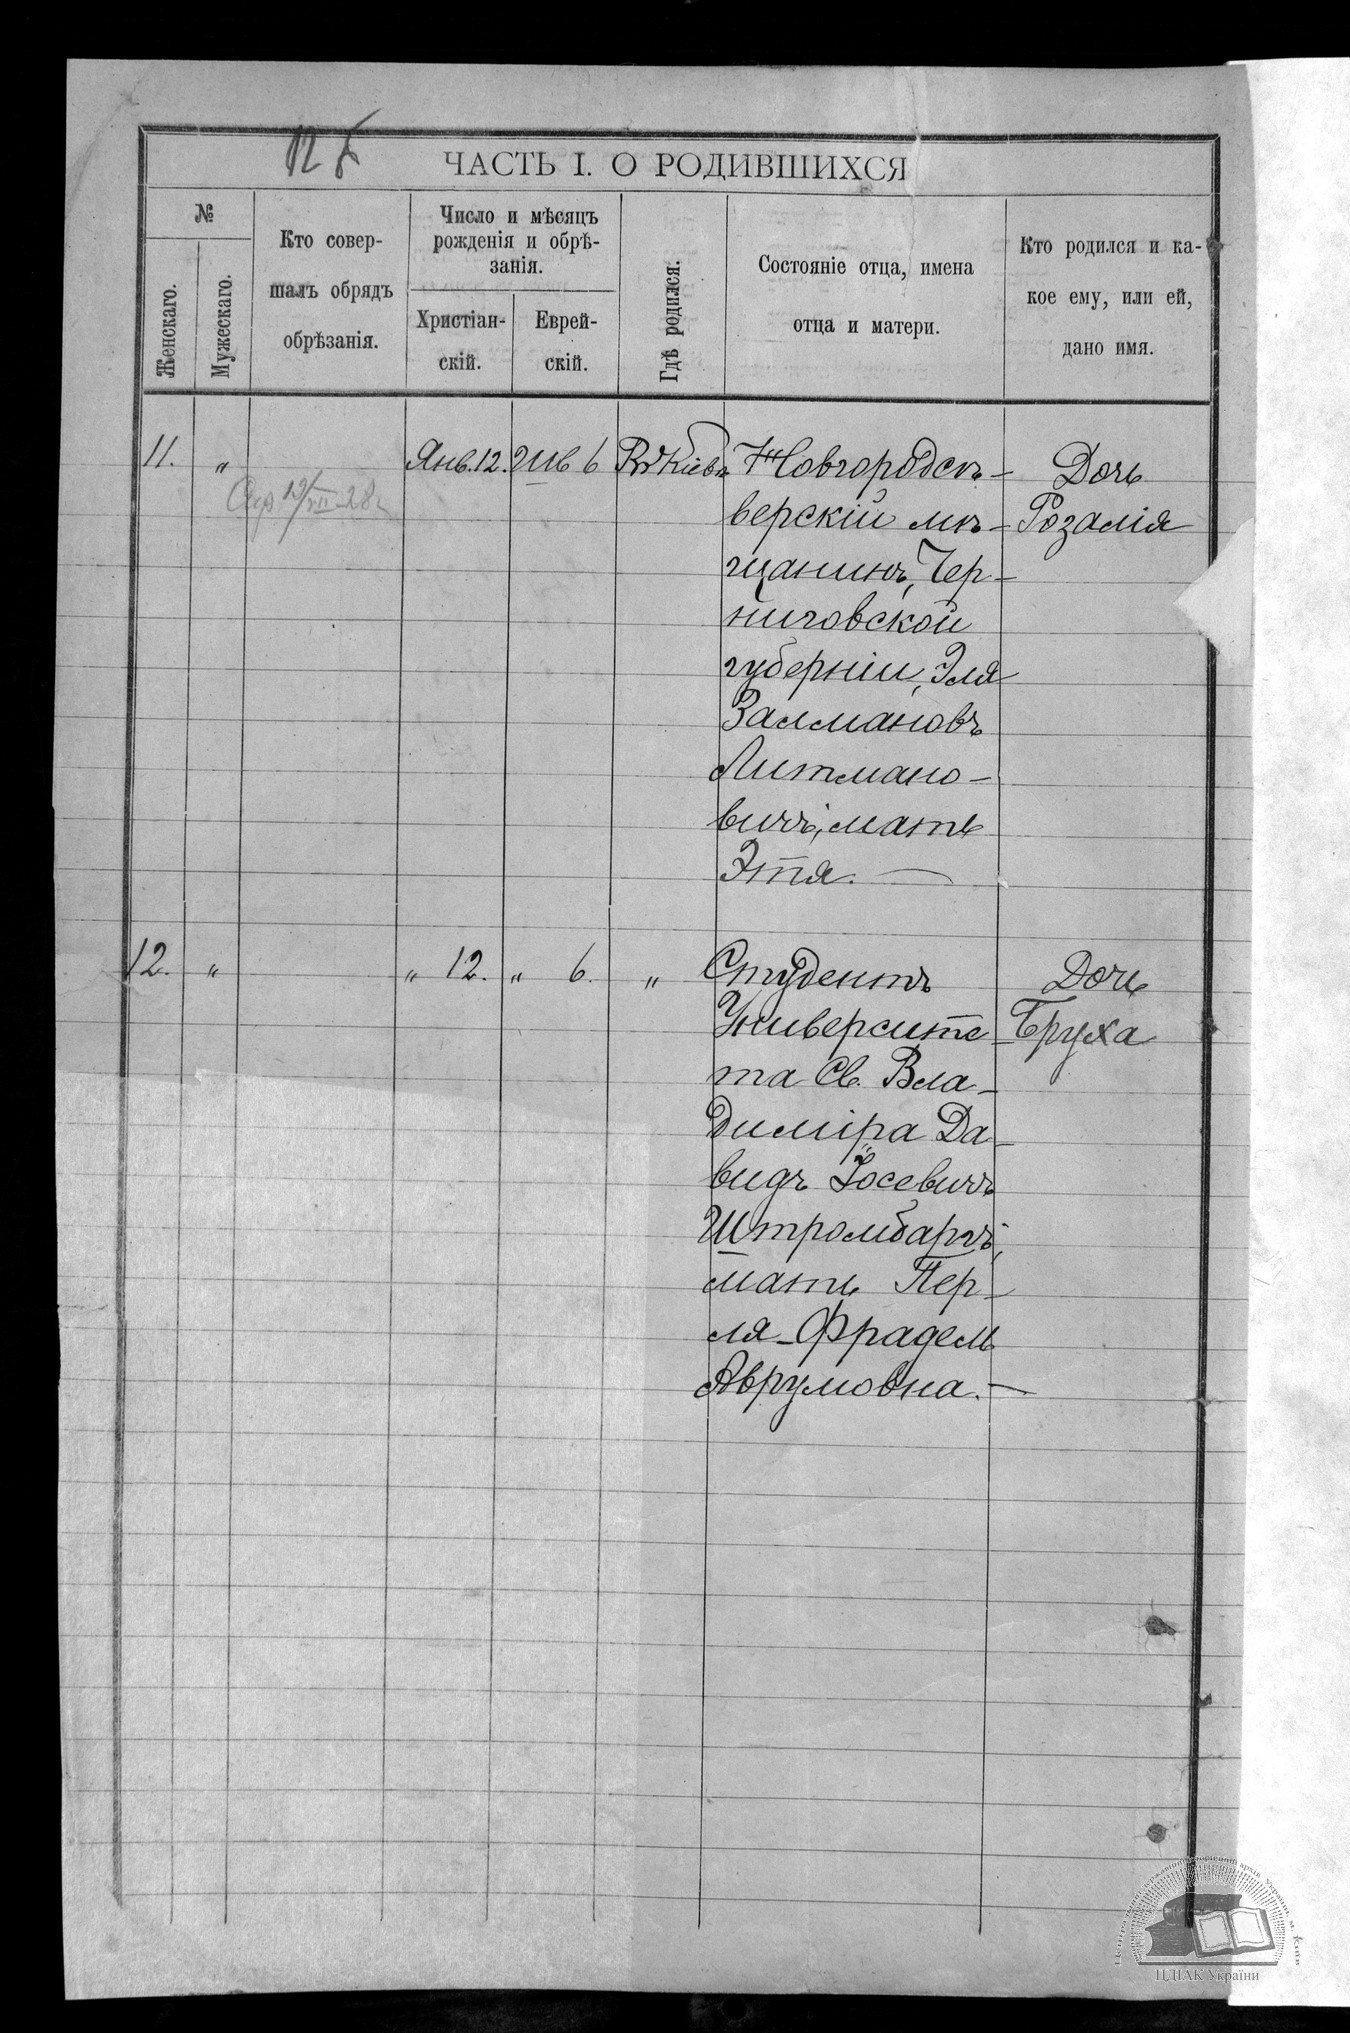 ЧАСТЬ I. О РОДИВШИХСЯ
№
Женскаго.
Мужескаго.
Кто совер-
шалъ обрядъ
обрѣзанія.
Число и мѣсяцъ
рожденія и обрѣ-
занія.
Христіан-
скій.
Еврей-
скій.
Гдѣ родился.
Состояніе отца, имена
отца и матери.
Кто родился и ка-
кое ему, или ей,
дано имя.
11. „ Янв. 12. Шв 6 Въ Кіевѣ
Новгородсѣ-
верскій мѣ-
щанинъ, Чер-
ниговской
губерніи, Эля
Залмановъ
Литмано-
вичъ, мать
Этя. —
Дочь
Розалія
12. „ „ 12. „ 6. „
Студентъ
Университе-
та Св. Вла-
диміра Да-
видъ Іосевичъ
Штромбаргъ,
мать Пер-
ля-Фрадель
Аврумовна. —
Дочь
Бруха
ЦДІАК України